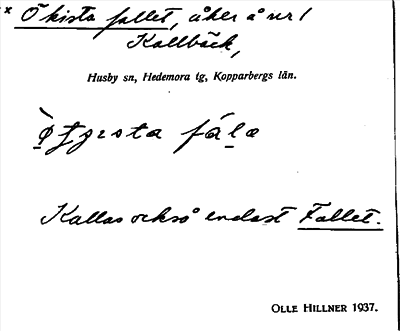 ×× Ökista fallet, åker å nr 1
Kallbäck,
Husby sn, Hedemora tg, Kopparbergs län.
fála
Kallas också endast Fallet.
OLLE HILLNER 1937.